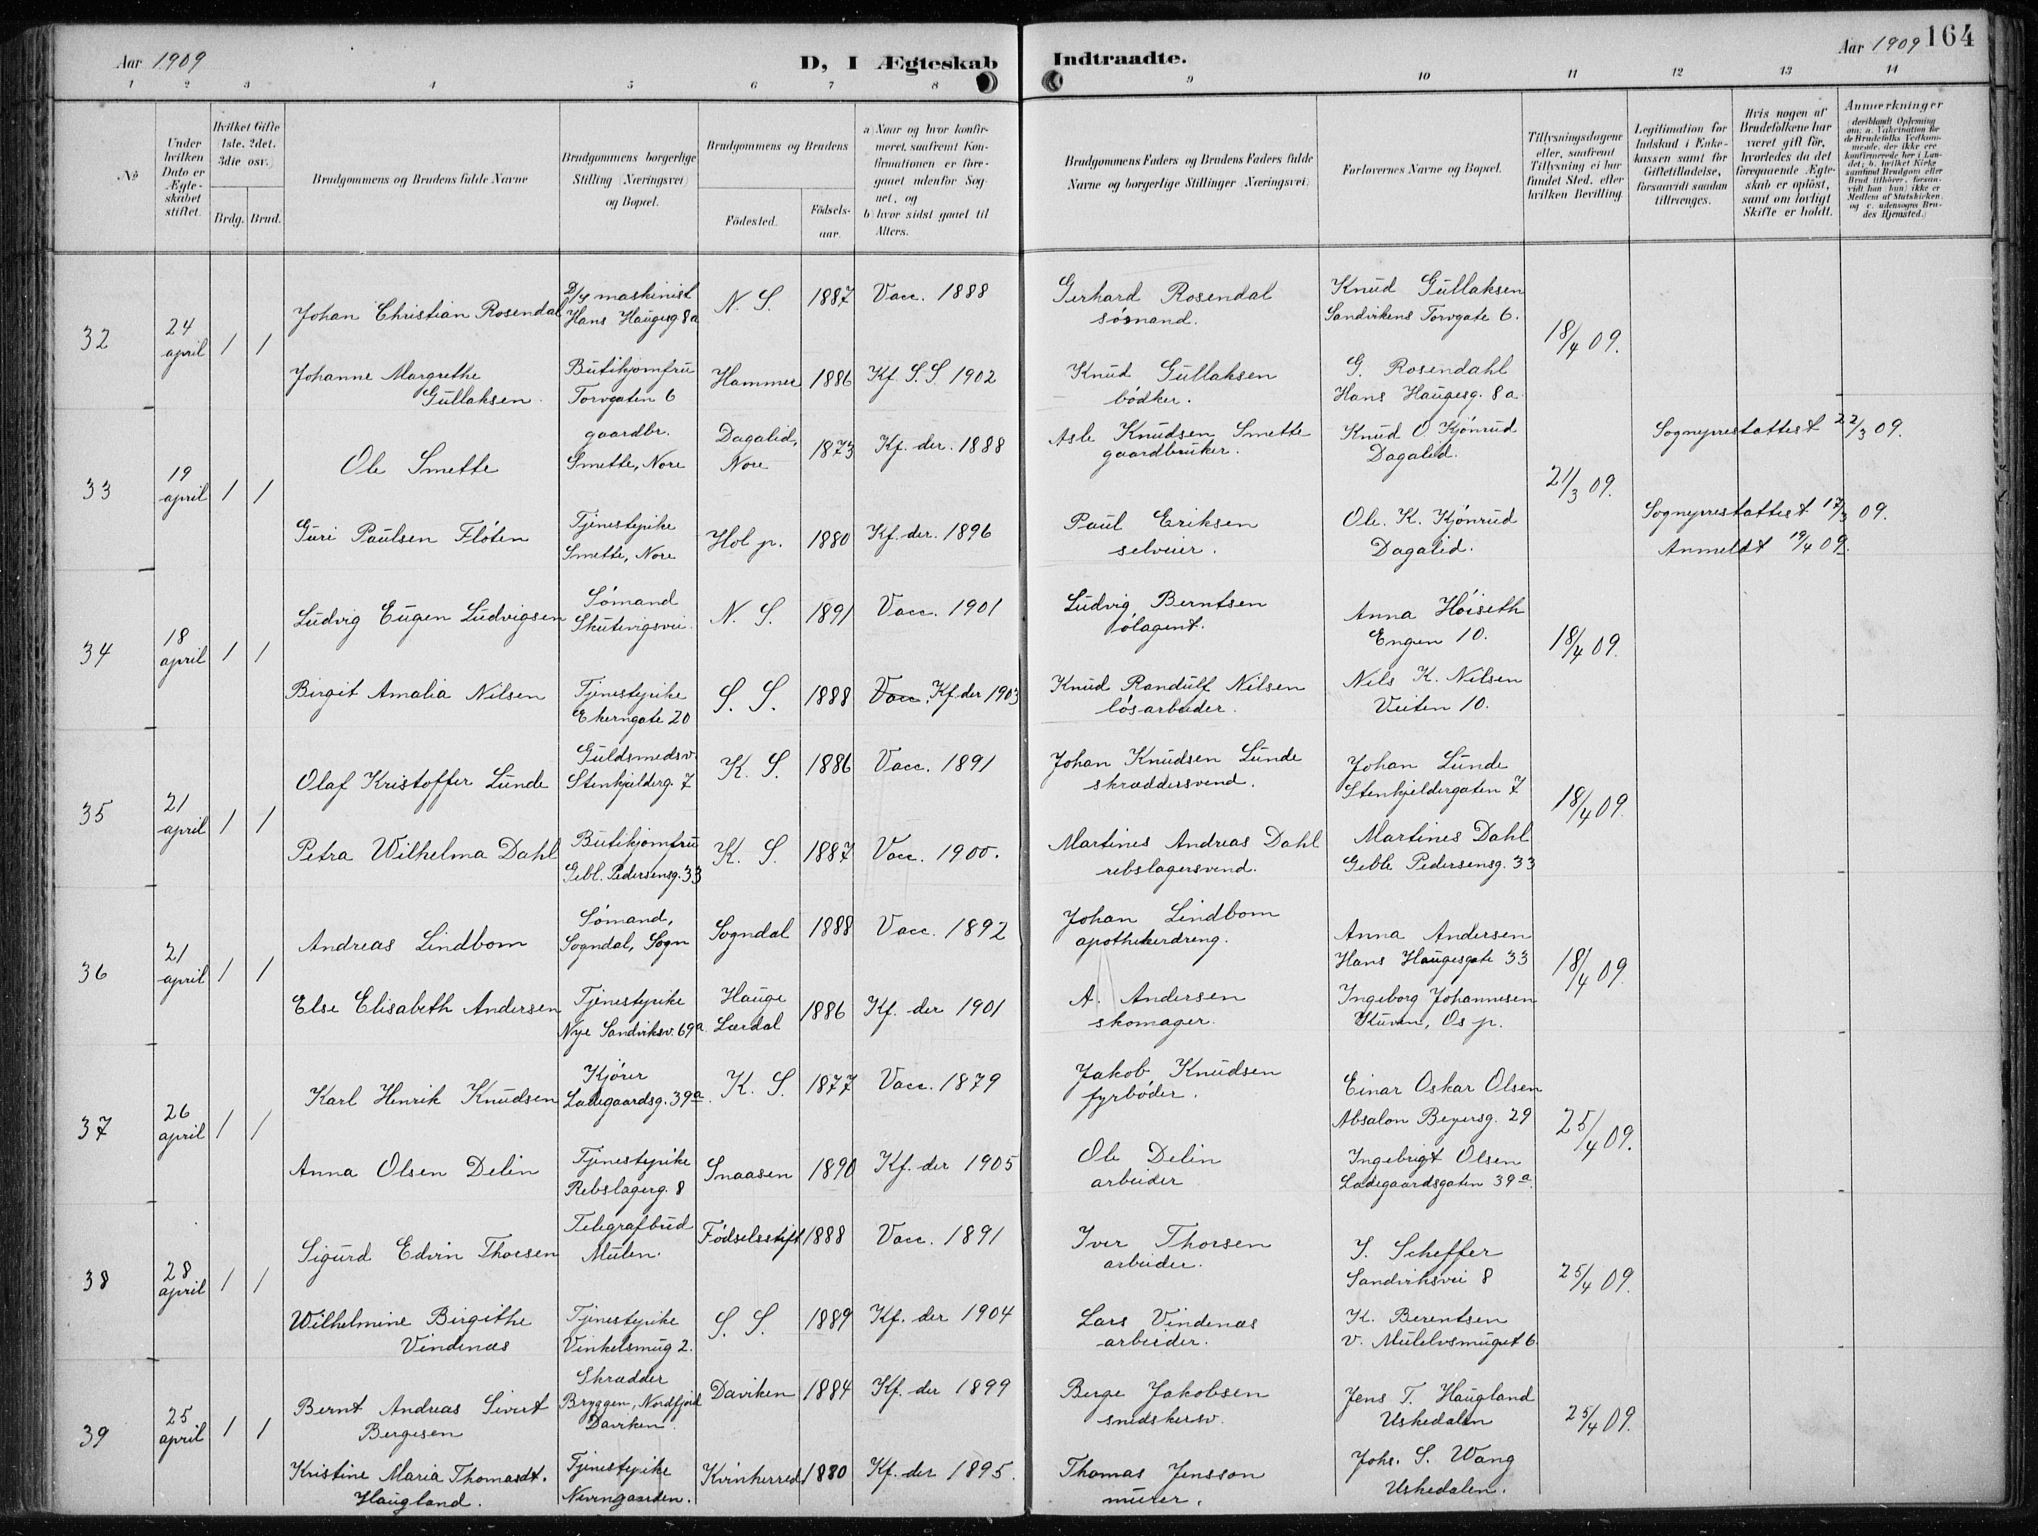 Aar 1909
D, I Ægteskab
Indtraadte.
Aar 1909
164
1 2 3 4 5 6 7 8
9 10 11 12 13 14
No
Under hvilken Dato er Ægteskabet stiftet.
Hvilket Gifte 1ste. 2det. 3die osv.)
Brdg. Brud.
Brudgommens og Brudens fulde Navne
Brudgommens borgerlige Stilling (Næringsvei) og Bopæl.
Brudgommens og Brudens
Födested.
Födselsaar.
a) Naar og hvor konfirmeret, saafremt Konfirmationen er foregaaet udenfor Sognet, og
b) hvor sidst gaaet til Alters.
Brudgommens Faders og Brudens Faders fulde Navne og borgerlige Stillinger (Næringsvei)
Forlovernes Navne og Bopæl.
Tillysningsdagene eller, saafremt Tillysning ei har fundet Sted, efter hvilken Bevilling.
Legitimation for Indskud i Enkekassen samt for Giftetilladelse, forsaavidt saadan tiltrænges.
Hvis nogen af Brudefolkene har været gift för, hvorledes da det foregaaende Ægteskab er oplöst, samt om lovligt Skifte er holdt.
Anmærkninger
(deriblandt Oplysning om: a. Vakcination for de Brudefolks Vedkommende, der ikke ere konfirmerede her i Landet; b. hvilket Kirkesamfund Brudgom eller Brud tilhörer, forsaavidt han (hun) ikke er Medlem af Statskirken, og c. udensogns Brudes Hjemsted.)
32
24 april
1 1
Johan Christian Rosendal
D/S maskinist
Hans Haugesg 8a
N. S.
1887
Vacc. 1888
Gerhard Rosendal
sømand.
Knud Gullaksen
Sandvikens Torvgate 6.
18/4 09.
Johanne Margrethe
Gullaksen
Butikjomfru
Torvgaten 6
Hammer
1886
Kf. S. S. 1902
Knud Gullaksen
bødker.
G. Rosendahl
Hans Haugesg. 8a.
33
19 april
1 1
Ole Smette
gaardbr.
Smette, Nore
Dagalid,
Nore
1873
Kf. der. 1888
Asle Knudsen Smette
gaardbruker.
Knud O. Kjønrud
Dagalid.
21/3 09.
Sogneprestattest 22/3 09.
Guri Paulsen Fløten
Tjenestepike
Smette, Nore
Hol p.
1880
Kf. der. 1896
Paul Eriksen
selveier.
Ole. K. Kjønrud
Dagalid.
Sogneprestattest 17/3 09.
Anmeldt 19/4 09.
34
18 april
1 1
Ludvig Eugen Ludvigsen
Sømand
Skutevigsvei.
N. S.
1891
Vacc. 1901
Ludvig Berntsen
ølagent.
Anna Høiseth
Engen 10.
18/4 09.
Birgit Amalia Nilsen
Tjenestepike
Ekerngate 20
S. S.
1888
Vacc. Kf. der 1903
Knud Randulf Nilsen
løsarbeider.
Nils K. Nilsen
Veiten 10.
35
21 april
1 1
Olaf Kristoffer Lunde
Guldsmedsv.
Stenkjelderg. 7
K. S.
1886
Vacc. 1891
Johan Knudsen Lunde
skræddersvend.
Johan Lunde
Stenkjeldergaten 7
18/4 09.
Petra Wilhelma Dahl
Butikjomfru
Gebl. Pedersensg. 33
K. S.
1887
Vacc. 1900.
Martines Andreas Dahl
rebslagersvend.
Martines Dahl
Geble Pedersensg. 33
36
21 april
1 1
Andreas Lindbom
Sømand,
Sogndal, Sogn
Sogndal
1888
Vacc. 1892
Johan Lindbom
apothekerdreng.
Anna Andersen
Hans Haugesgate 33
18/4 09.
Else Elisabeth Andersen
Tjenestepike
Nye Sandviksv. 69a.
Hauge
Lærdal
1886
Kf. der 1901
A. Andersen
skomager.
Ingeborg Johannesen
Kuven, Os p.
37
26 april
1 1
Karl Henrik Knudsen
Kjører
Ladegaardsg. 39a.
K. S.
1877
Vacc. 1879
Jakob Knudsen
fyrbøder.
Einar Oskar Olsen
Absalon Beyersg. 29
25/4 09.
Anna Olsen Delin
Tjenestepike
Rebslagerg. 8
Snaasen
1890
Kf. der 1905
Ole Delin
arbeider
Ingebrigt Olsen
Ladegaardsgaten 39a.
38
28 april
1 1
Sigurd Edvin Thorsen
Telegrafbud
Mulen.
Fødselsstift
1888
Vacc. 1891
Iver Thorsen
arbeider.
I. Scheffer
Sandviksvei 8
25/4 09.
Wilhelmine Birgithe
Vindenæs
Tjenestepike
Vinkelsmug 2.
S. S.
1889
Kf. der 1904
Lars Vindenæs
arbeider.
K. Berentsen
v. Mulelvsmuget 6
39
25 april
1 1
Bernt Andreas Sivert
Bergesen
Skrædder
Bryggen, Nordfjord
Daviken.
Daviken
1884
Kf. der 1899
Berge Jakobsen
snedkersv.
Jens T. Haugland
Uskedalen
25/4 09.
Kristine Maria Thomasdt.
Haugland.
Tjenestepike
Nevengaarden.
Kvinherred
1880
Kf. der 1895.
Thomas Jensson
murer.
Johs. S. Wang
Uskedalen.